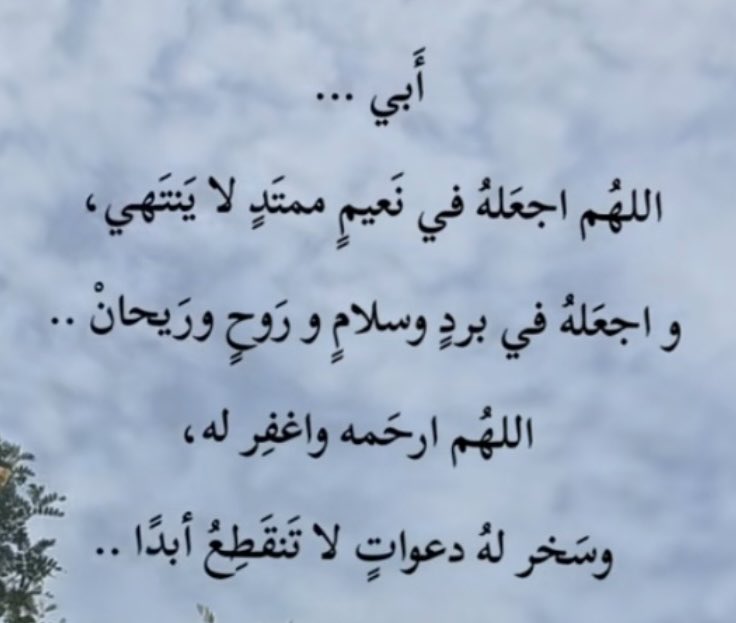 أَبي ...
اللهُم اجعَلهُ في نَعيمٍ ممتَدٍ لا يَنتَهي،
و اجعَلهُ في بردٍ وسلامٍ و رَوحٍ ورَيحانْ ..
اللهُم ارحَمه واغفِر له،
وسَخر لهُ دعواتٍ لا تَنقَطِعُ أبدًا ..